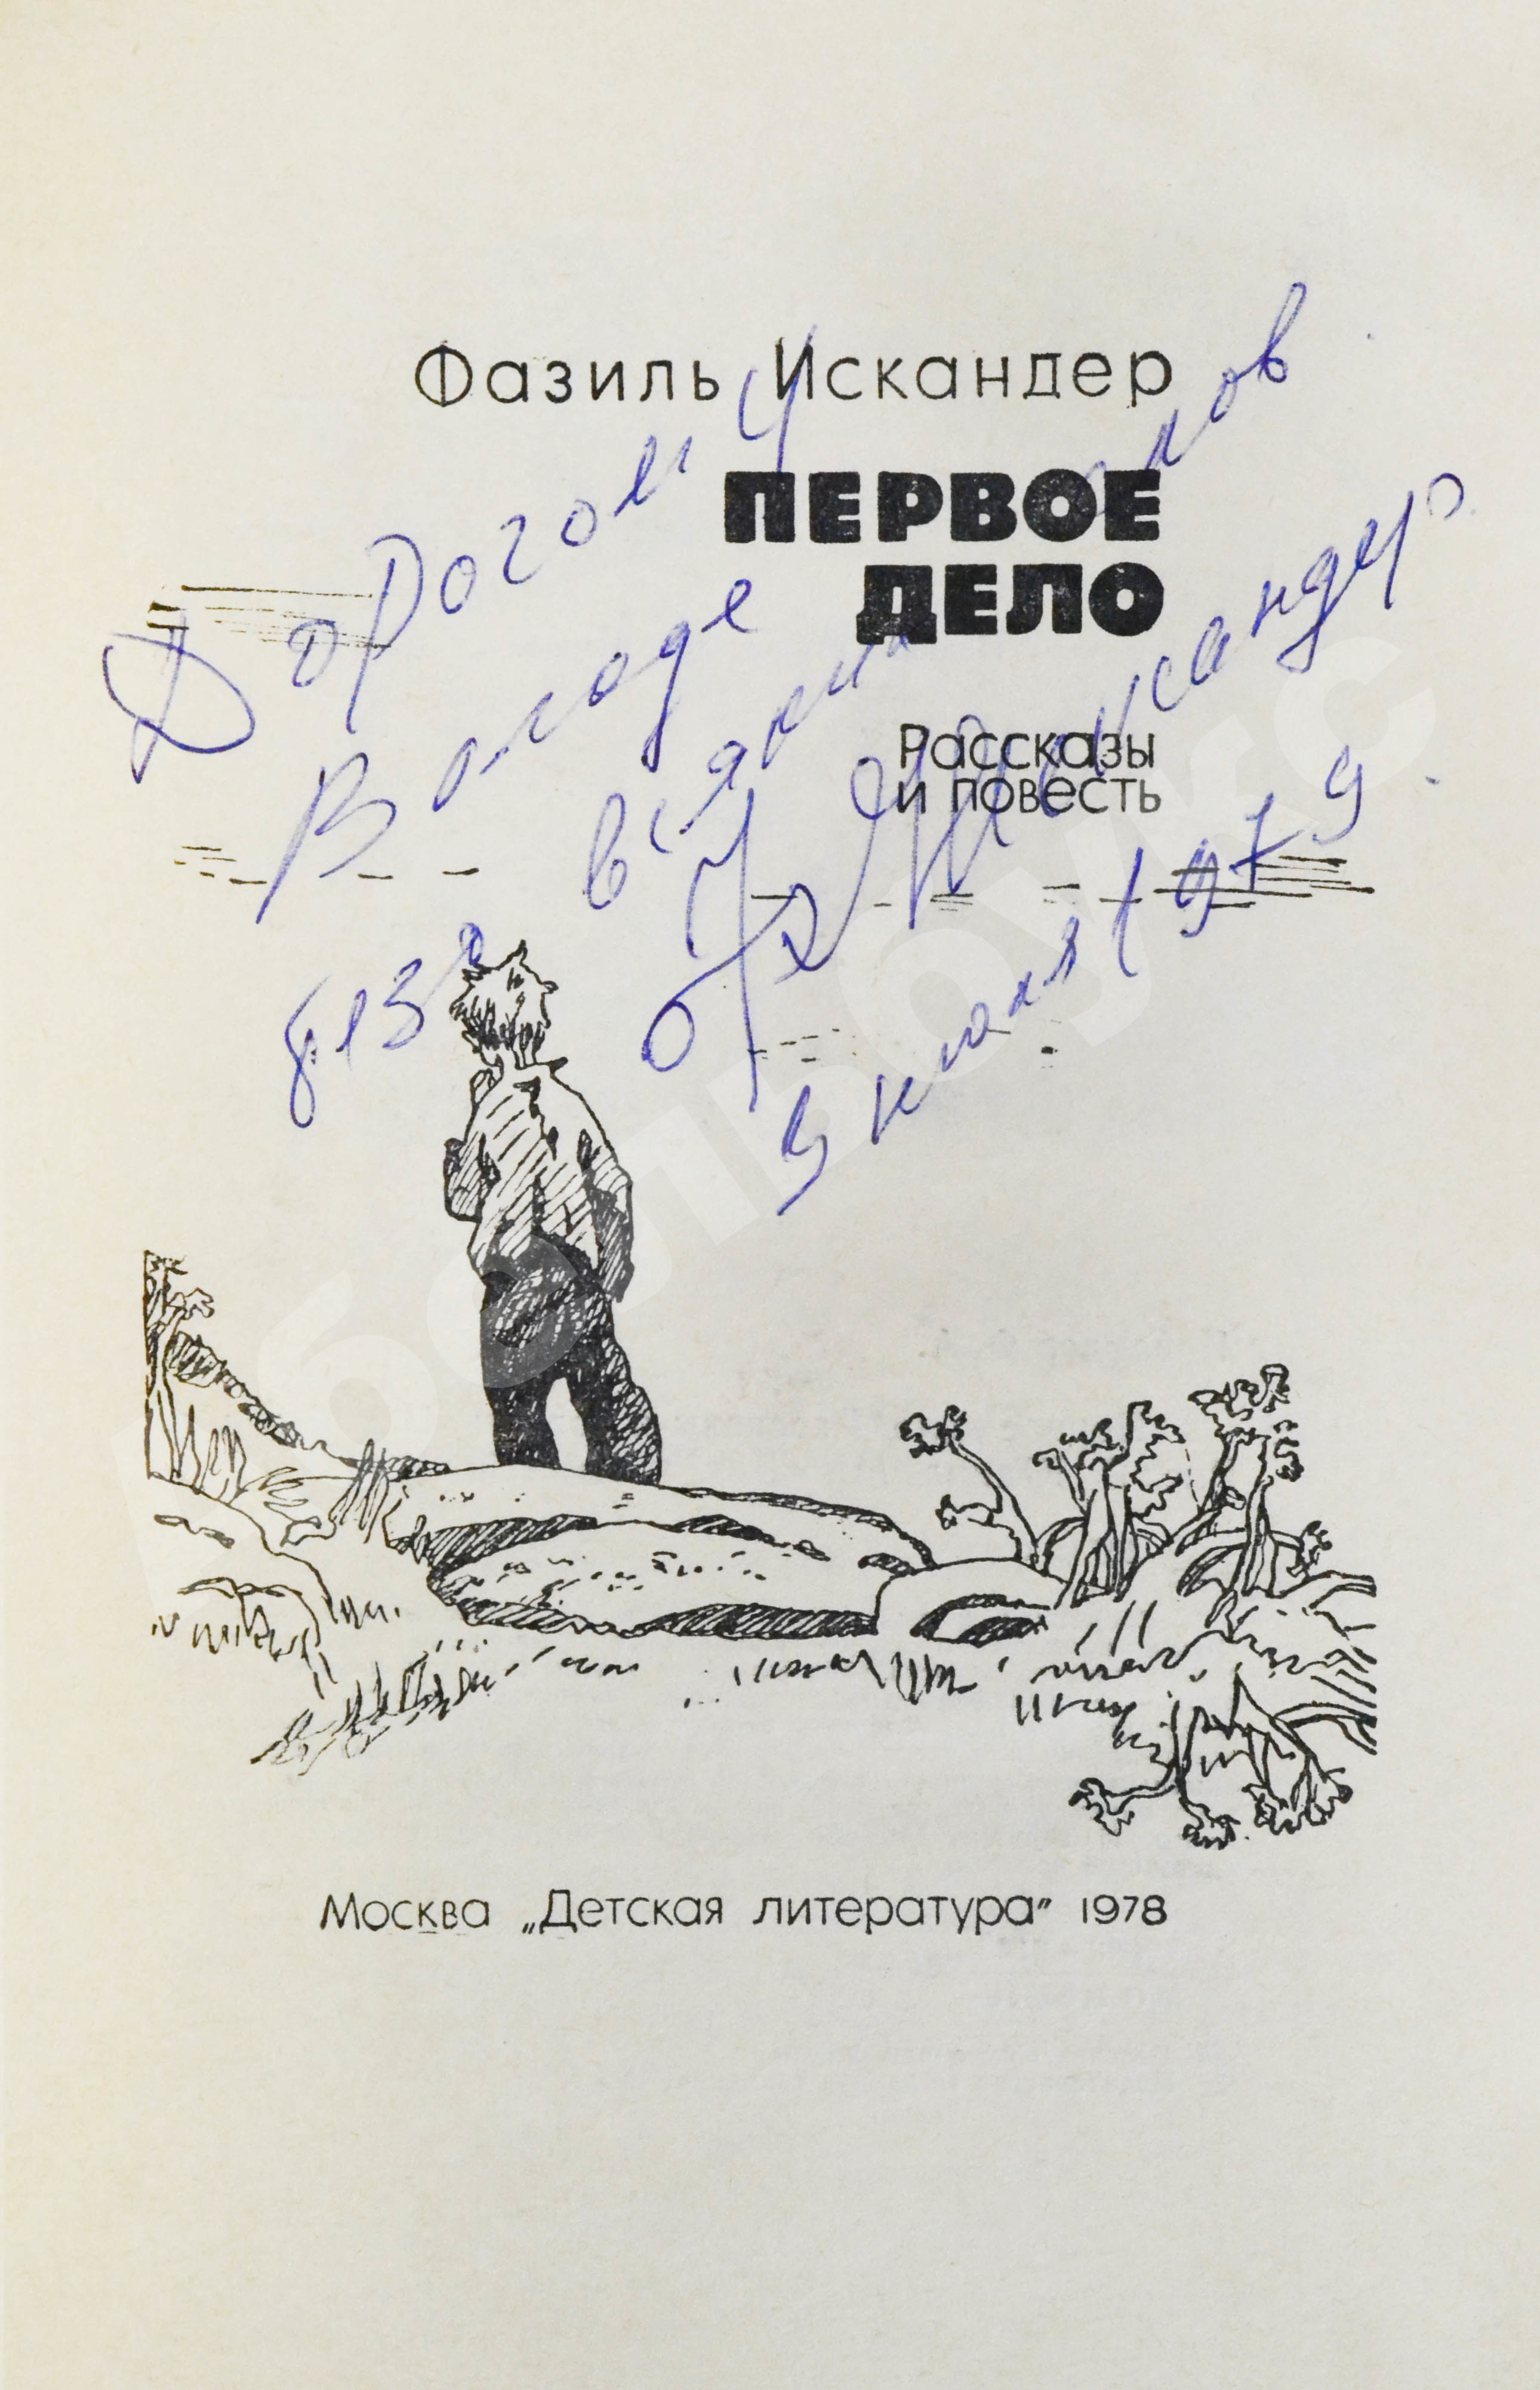 Фазиль Искандер
ПЕРВОЕ
ДЕЛО
Рассказы
и повесть
Дорогому
Володе
без всяких слов
Ф Искандер
3 июля 1979
Москва „Детская литература" 1978